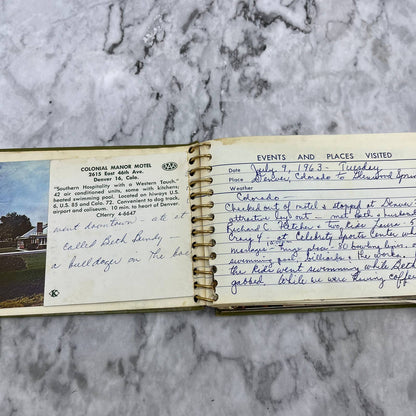 COLONIAL MANOR MOTEL
2615 East 46th Ave.
Denver 16, Colo.
AAA
"Southern Hospitality with a Western Touch."
42 air conditioned units, some with kitchens;
heated swimming pool. Located on hiways U.S.
U. S. 85 and Colo. 72. Convenient to dog track,
airport and coliseum. 10 min. to heart of Denver.
CHerry 4-6647
went downtown ate at
called Beck Bendy
a bulldozer on the
K
EVENTS AND PLACES VISITED
Date July 9, 1963 - Tuesday
Place Denver, Colorado to Glenwood Spri
Weather
Colorado
Checked out of motel & stopped at Denver
attractive lay out - met Beck & husban
Richard C. Fletcher & two kids Laura
Craig 4 - at Celebrity Sports Center wh
80 bowling lanes
swimming pool, billiards & the works.
the kids went swimming while Beck
gabbed. While we were having coffee